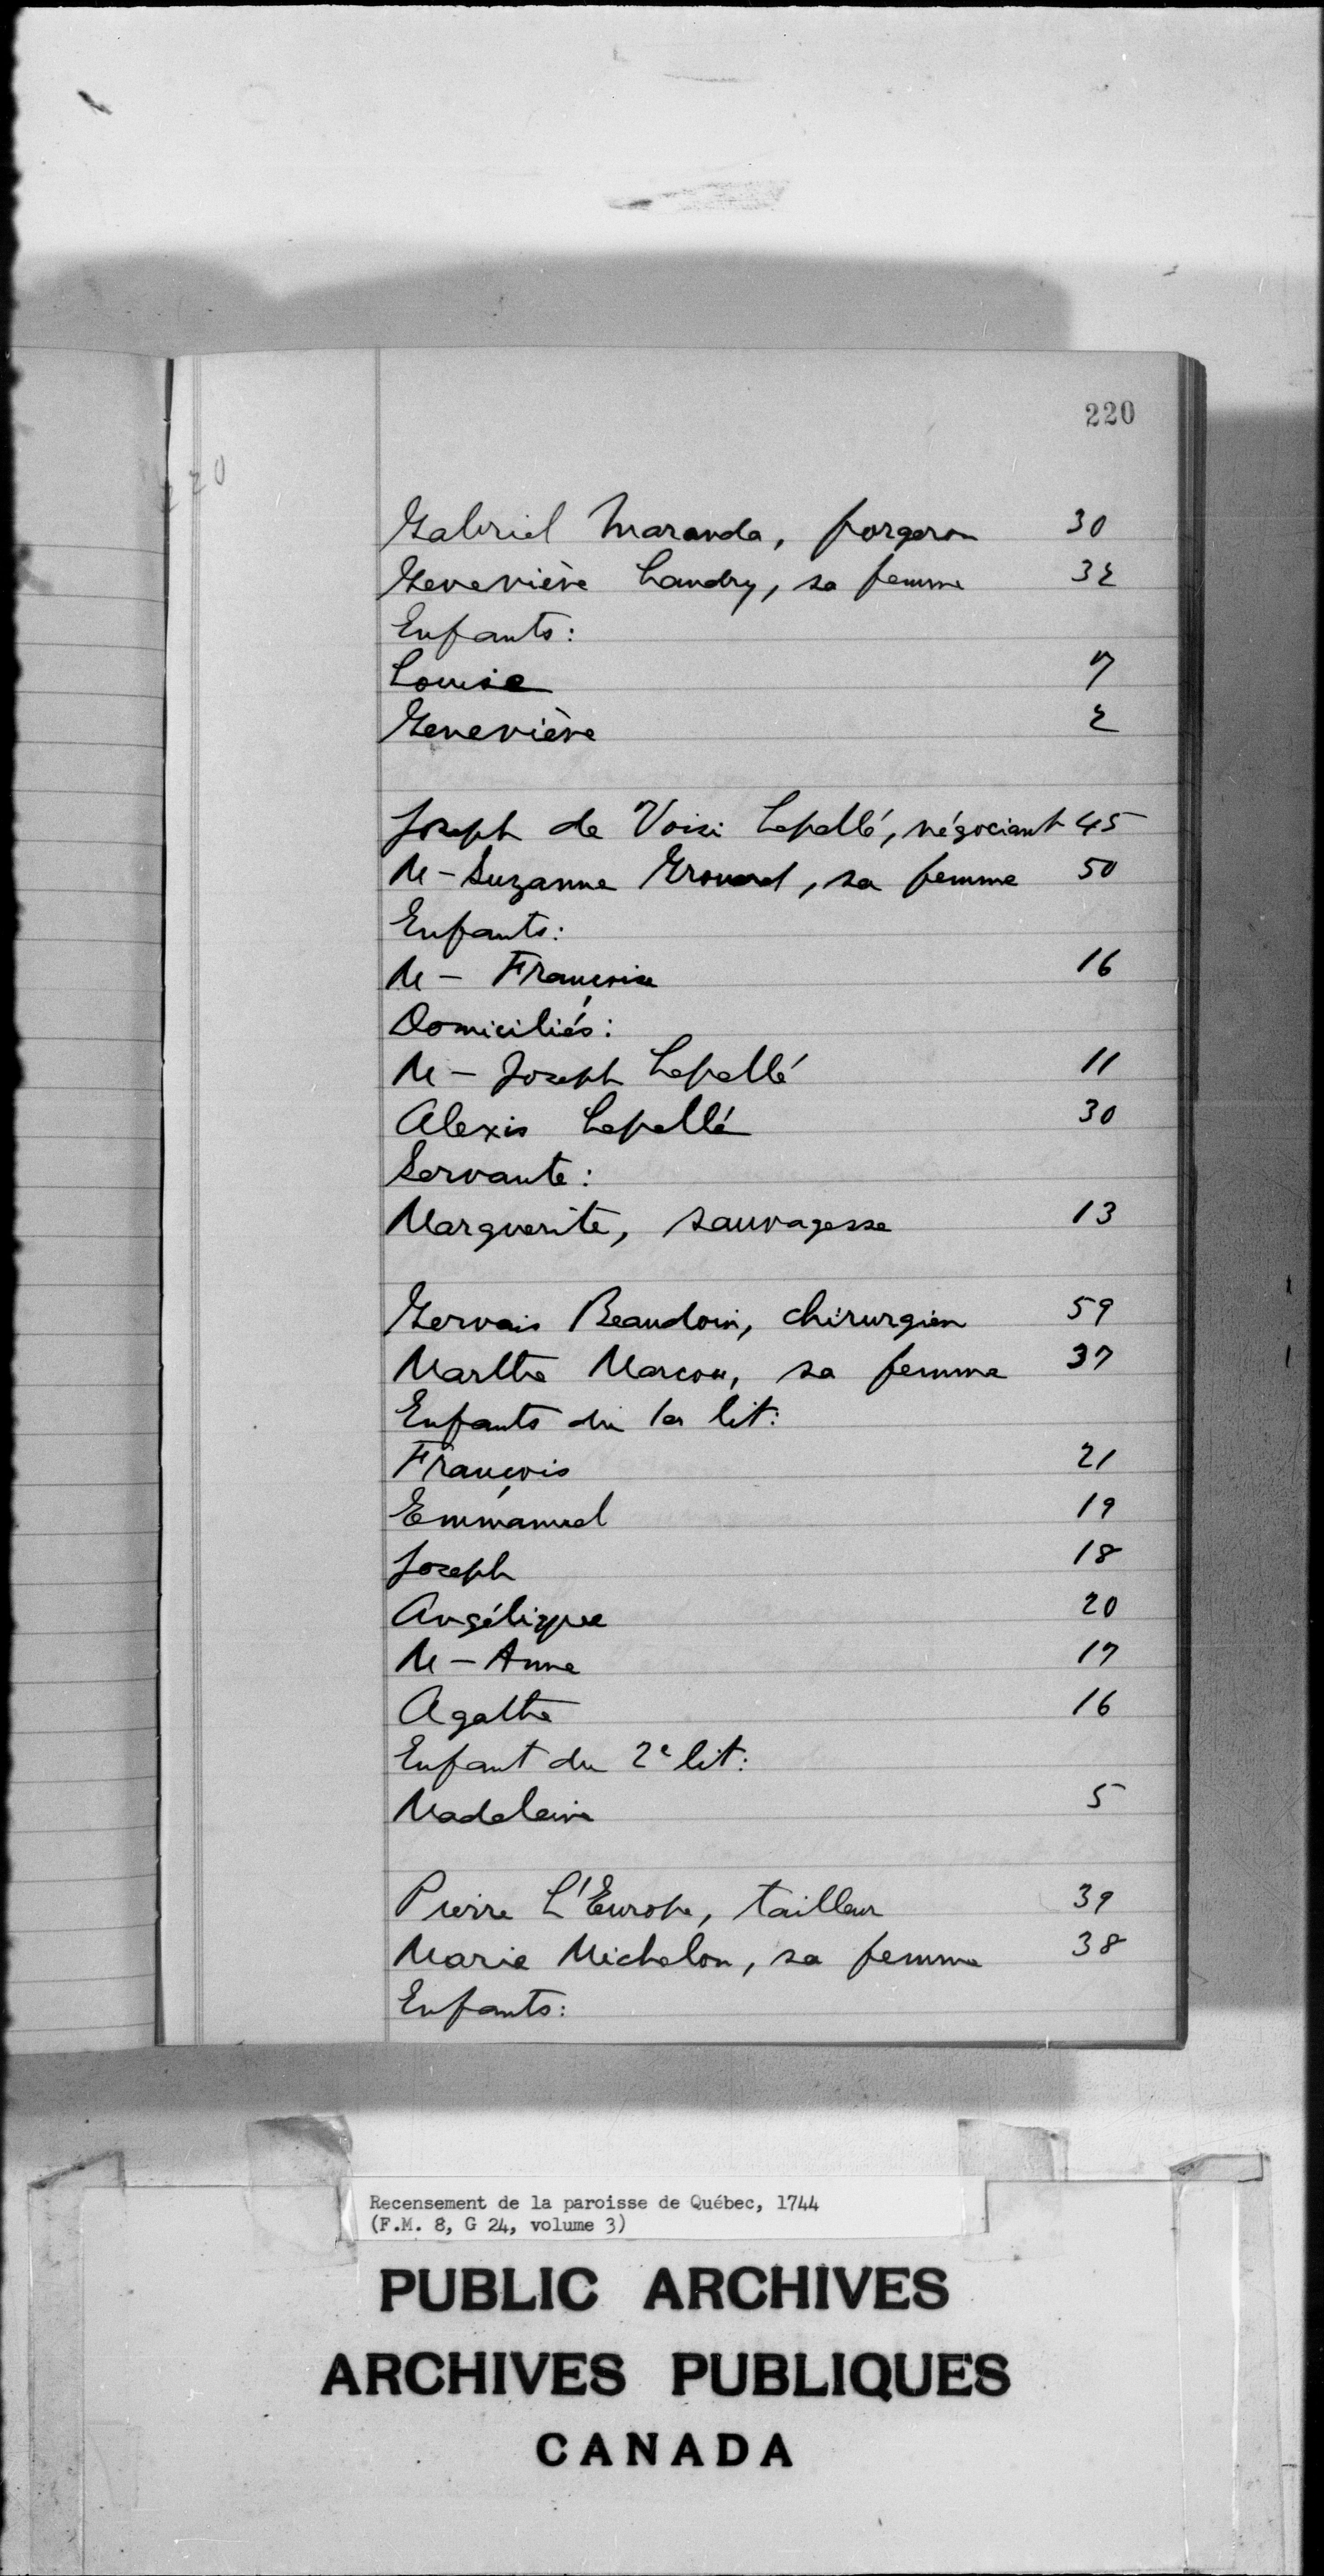 220
220
Gabriel Maranda, forgeron 30
Geneviève Landry, sa femme 32
Enfants:
Louise 7
Geneviève 2
Joseph de Voisi Lepellé, négociant 45
M-Suzanne Grouard, sa femme 50
Enfants:
M- Françoise 16
Domiciliés:
M- Joseph Lepellé 11
Alexis Lepellé 30
Servante:
Marguerite, sauvagesse 13
Gervais Beaudoin, chirurgien 59
Marthe Marcou, sa femme 37
Enfants du 1er lit:
François 21
Emmanuel 19
Joseph 18
Angélique 20
M- Anne 17
Agathe 16
Enfant du 2e lit:
Madeleine 5
Pierre L'Europe, tailleur 39
Marie Michelon, sa femme 38
Enfants:
Recensement de la paroisse de Québec, 1744
(F.M. 8, G 24, volume 3)
PUBLIC ARCHIVES
ARCHIVES PUBLIQUES
CANADA